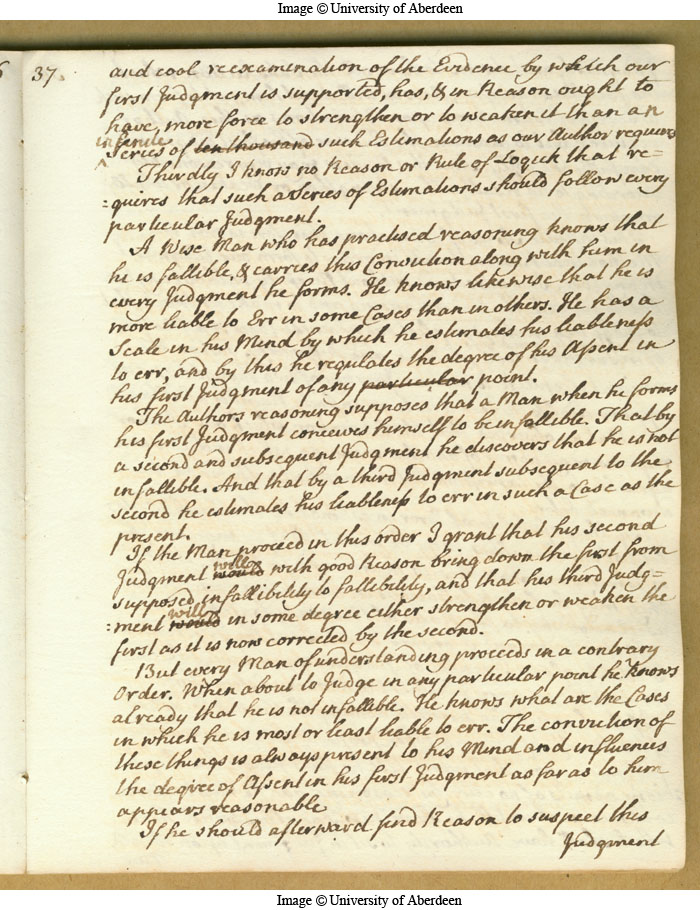 Image © University of Aberdeen
37.
and cool reexamination of the Evidence by which our
first Judgment is supported, has, & in Reason ought to
have, more force to strengthen or to weaken it than an
infinite
Series of ten thousand such Estimations as our Author requires
Thirdly I know no Reason or Rule of Logick that re=
=quires that such a Series of Estimations should follow every
particular Judgment.
A Wise Man who has practised reasoning knows that
he is fallible, & carries this Conviction along with him in
every Judgment he forms. He knows likewise that he is
more liable to Err in some Cases than in others. He has a
Scale in his Mind by which he estimates his liableness
to err, and by this he regulates the degree of his Assent in
his first Judgment of any particular point.
The Authors reasoning supposes that a Man when he forms
his first Judgment conceives himself to be infallible. That by
a second and subsequent Judgment he discovers that he is not
infallible. And that by a third Judgment subsequent to the
second he estimates his liableness to err in such a Case as the
present.
If the Man proceed in this order I grant that his second
Judgment will would with good Reason bring down the first from
supposed infallibility to fallibility, and that his third Judg=
=ment will would in some degree either strengthen or weaken the
first as it is now corrected by the second.
But every Man of understanding proceeds in a contrary
Order. When about to Judge in any particular point he knows
already that he is not infallible. He knows what are the Cases
in which he is most or least liable to err. The conviction of
these things is always present to his Mind and influences
the degree of Assent in his first Judgment as far as to him
appears reasonable
If he should afterward find Reason to suspect this
Judgment
Image © University of Aberdeen